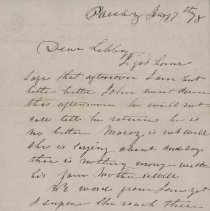 Paisley Jany 7th /78
Dear Libbie
I got home
safe that afternoon I am but
little better John went down
this afternoon he will not
call till he returns he is
no better Marcy is not well
she is laying about and says
there is nothing wrong with
her
Mother is well
word from
I supose the reach there